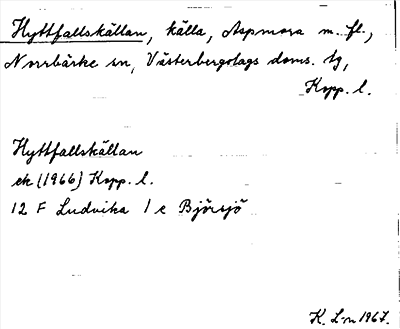 Hyttfallskällan, källa, Aspmora m. fl.,
Norrbärke sn, Västerbergslags doms. tg,
Kopp. l.
Hyttfallskällan
ek (1966) Kopp. l.
12 F Ludvika 1 e Björsjö
K. L-n 1967.